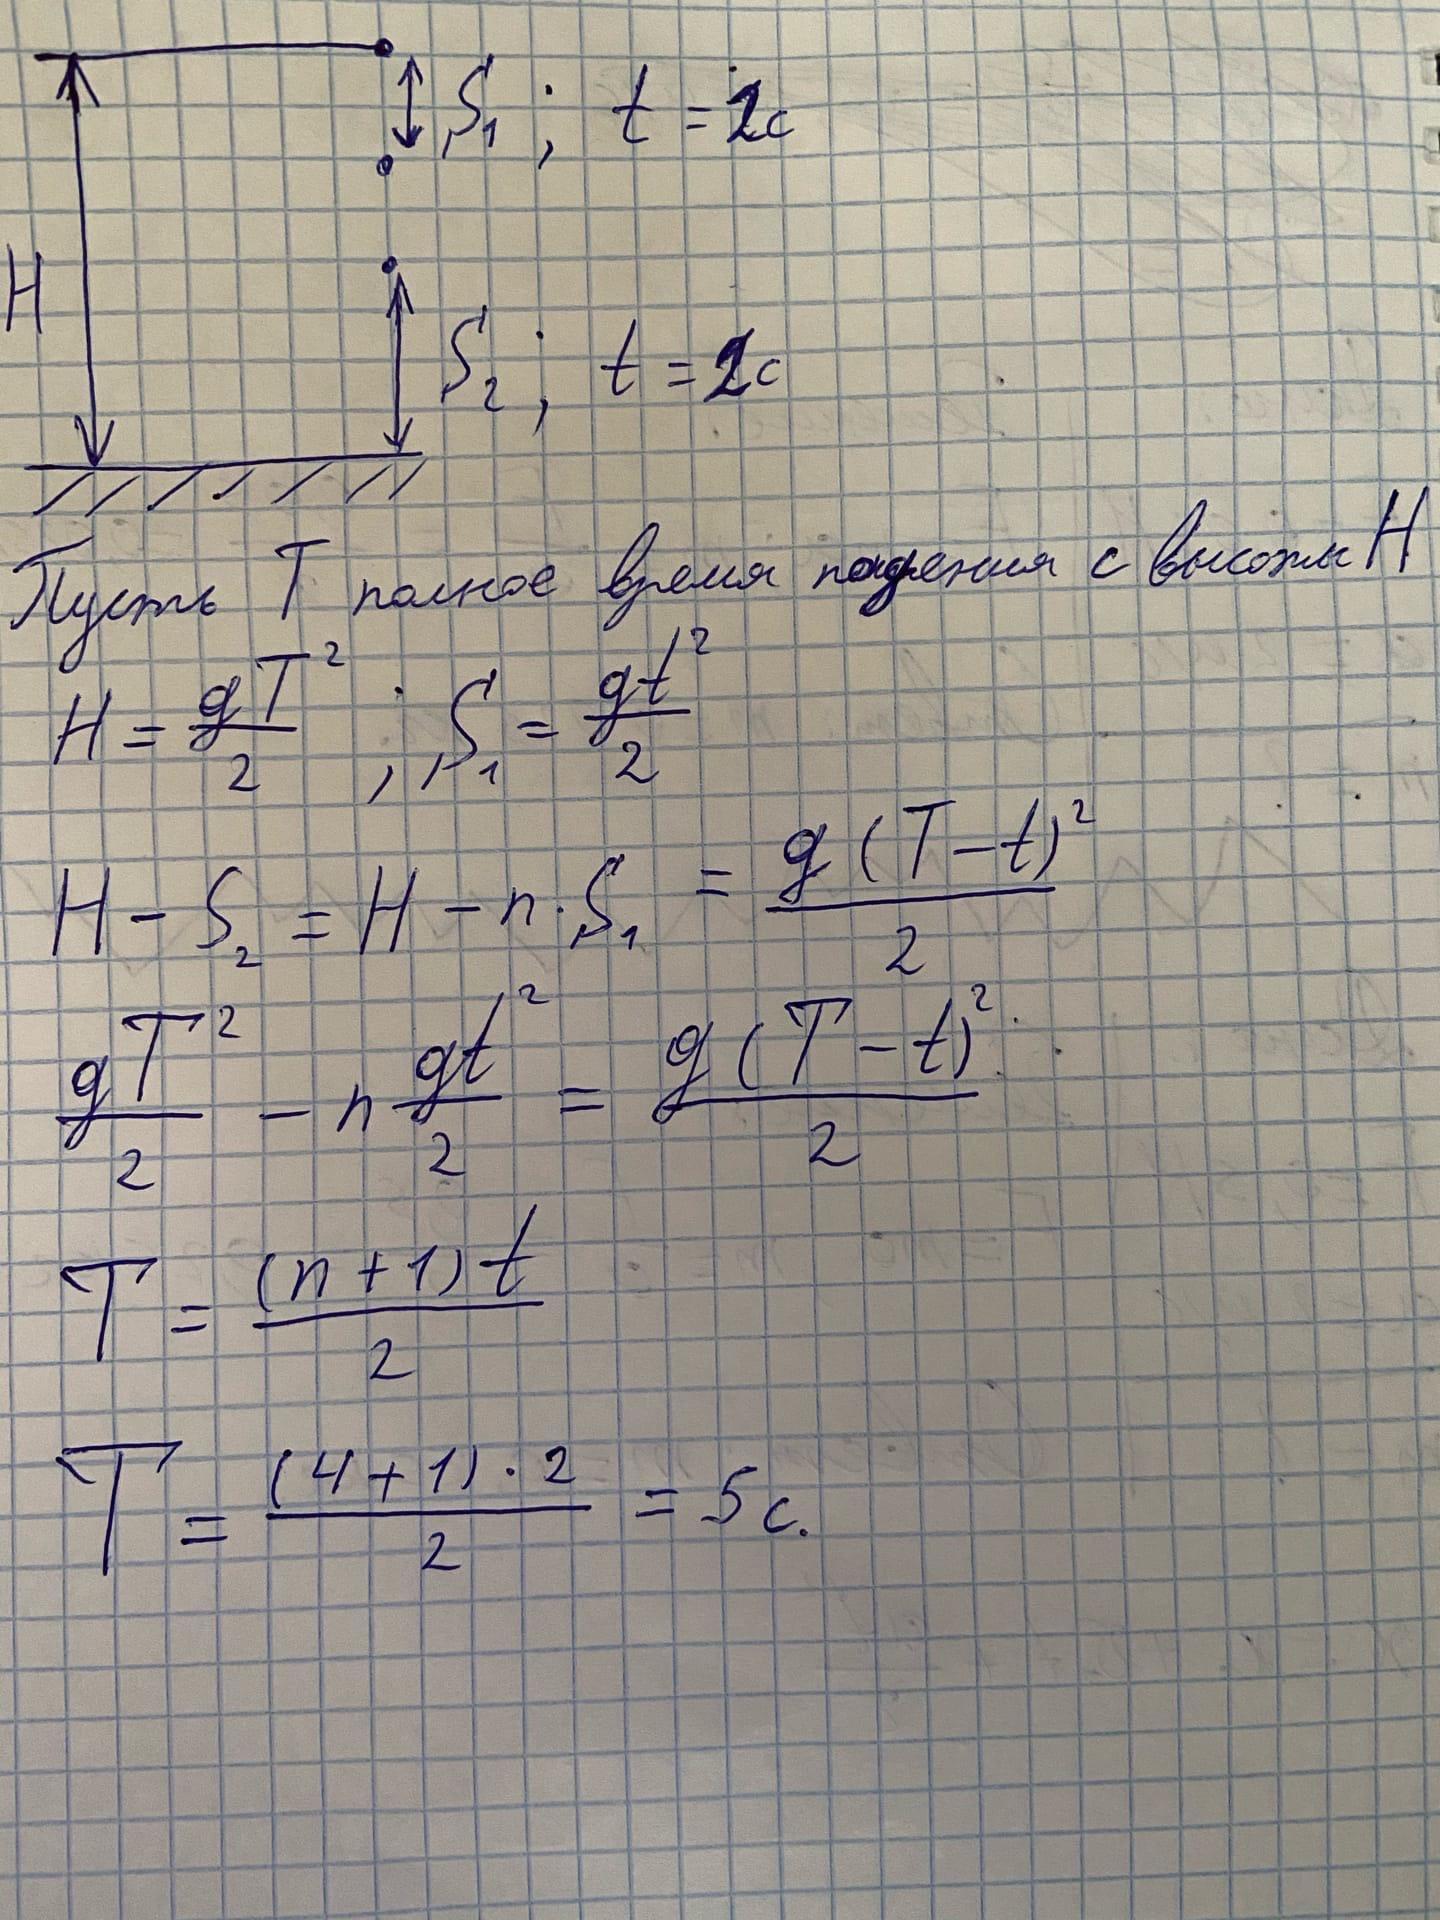 S₁; t = 2с
H
S₂; t = 2с
Пусть T полное время падения с высоты H
H = gT²/2 ; S₁ = gt²/2
H - S₂ = H - n·S₁ = g(T-t)²/2
gT²/2 - n gt²/2 = g(T-t)²/2
T = (n+1)t/2
T = (4+1)·2/2 = 5с.